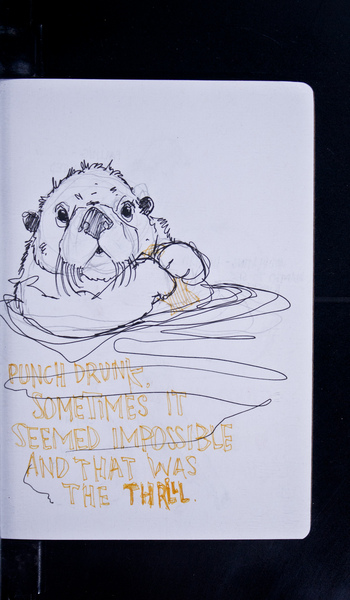 PUNCH DRUNK,
SOMETIMES IT
SEEMED IMPOSSIBLE
AND THAT WAS
THE THRILL.